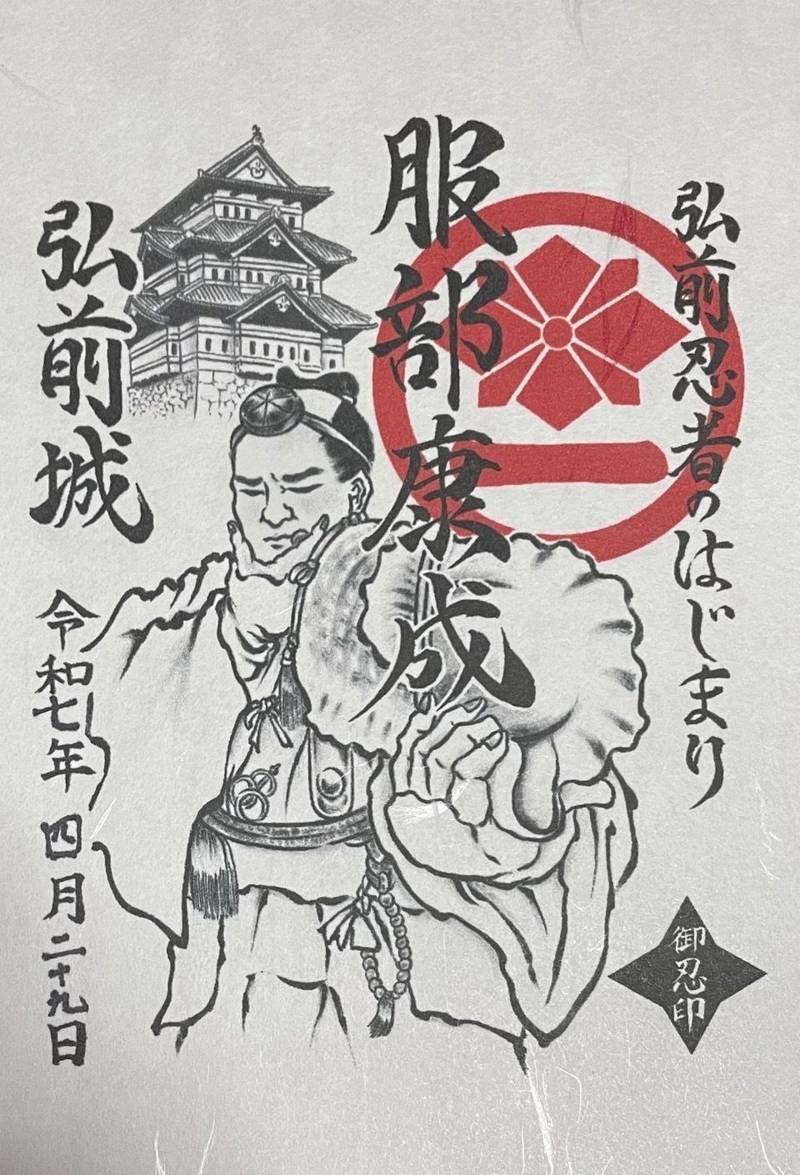 弘前忍者のはじまり
服部康成
弘前城
令和七年 四月二十九日
御忍印